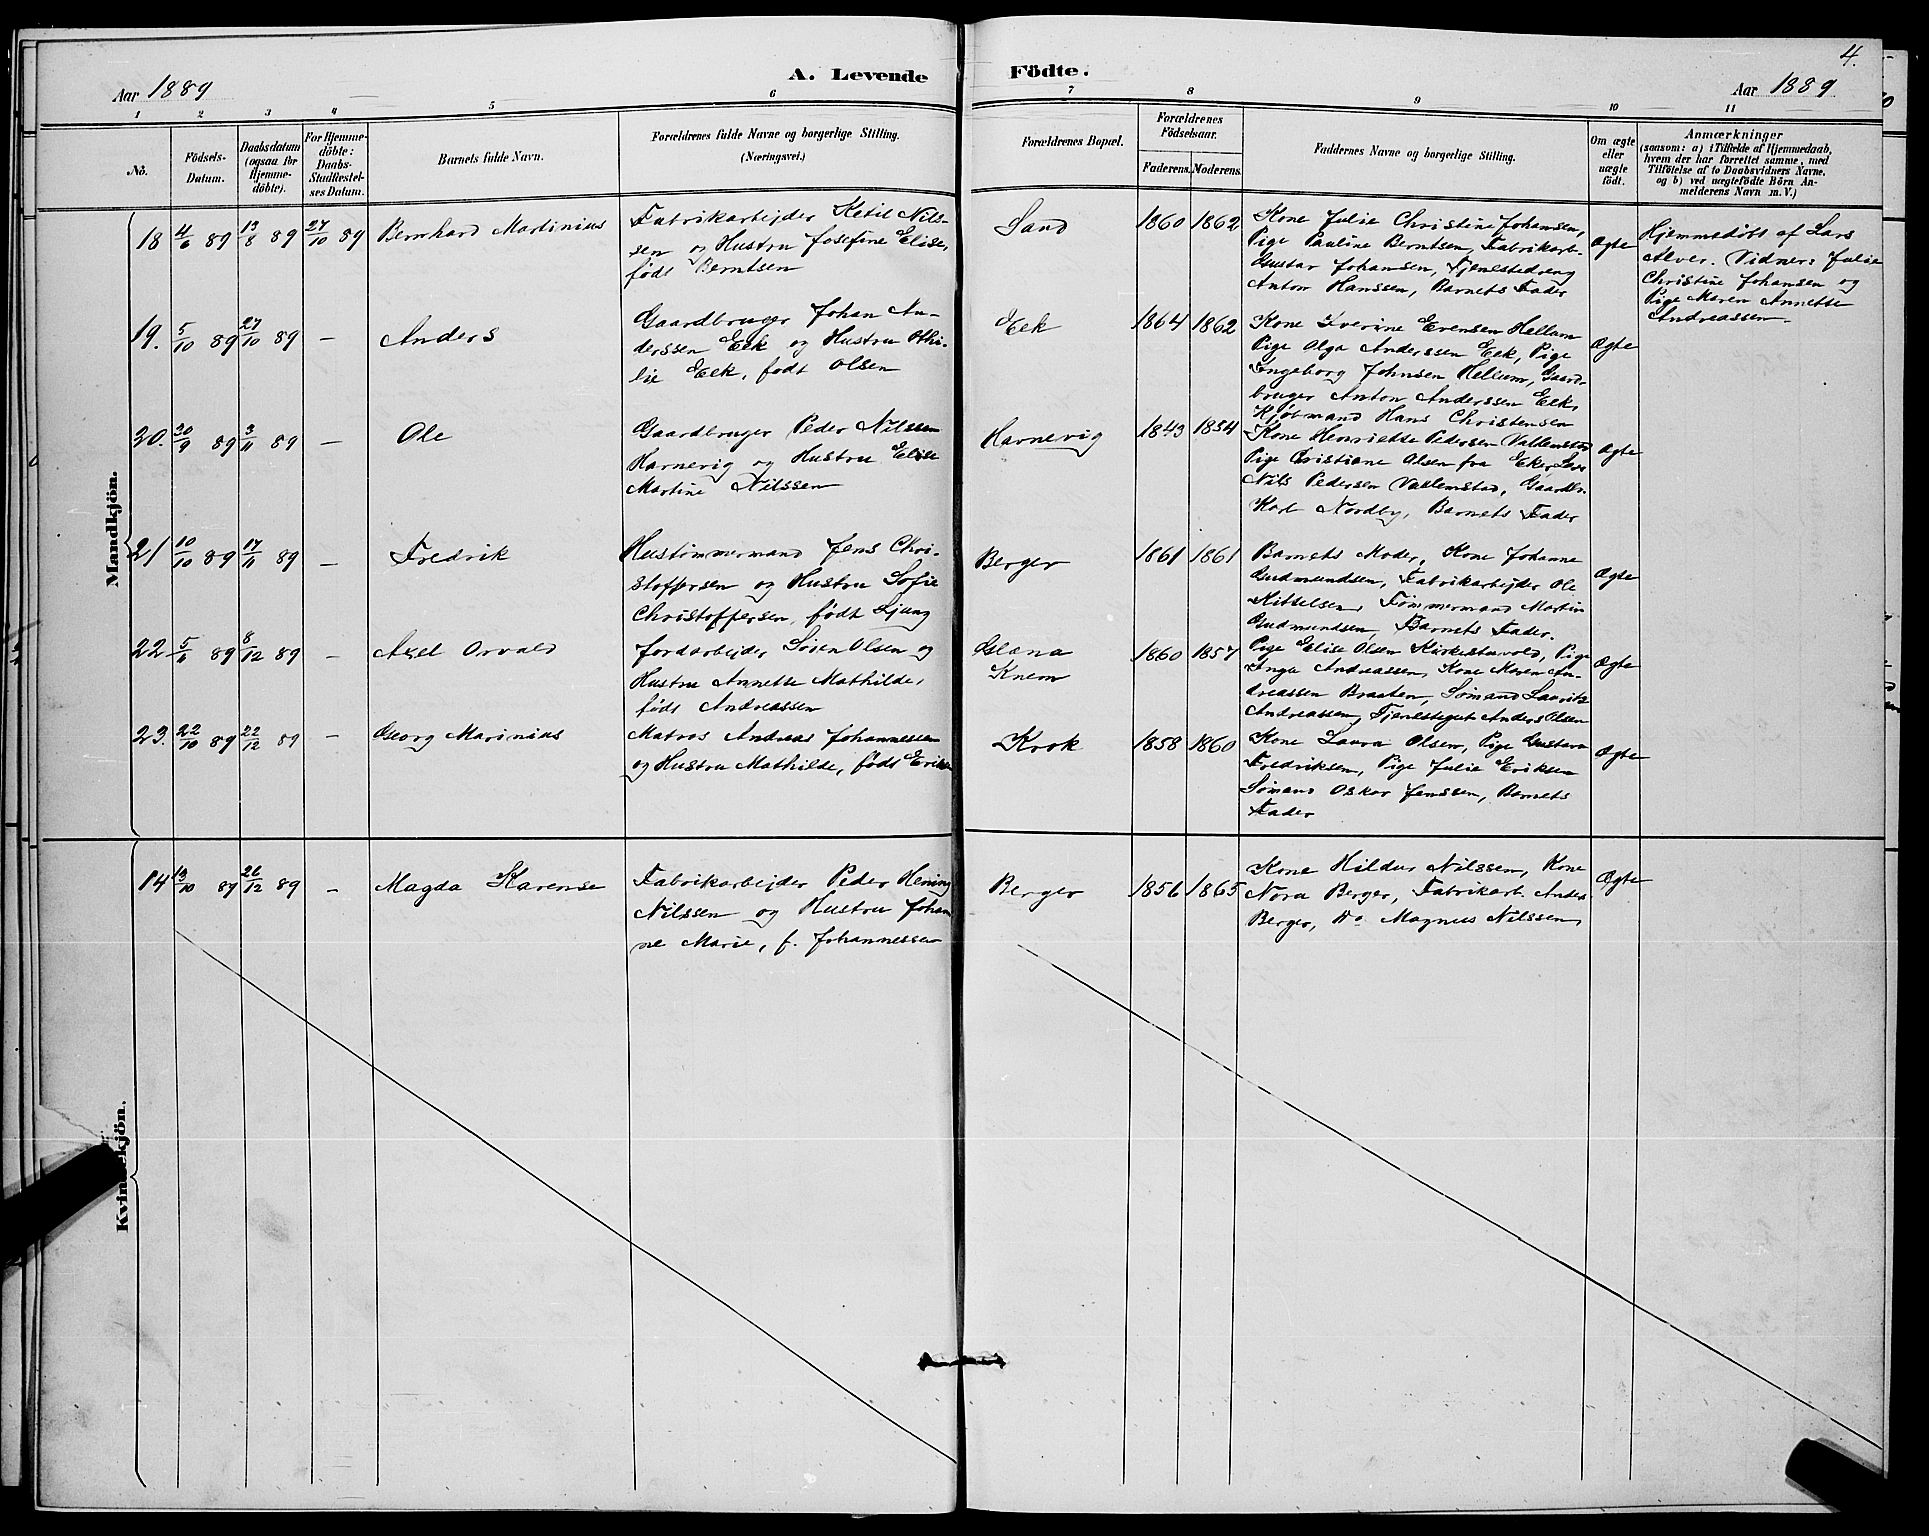 4.
Aar 1889
A. Levende
Födte.
Aar 1889
1 2 3 4 5 6 7 8 9 10 11
No.
Födsels-
Datum.
Daabsdatum
(ogsaa for
Hjemme-
döbte).
For Hjemme-
döbte:
Daabs-
Stadfæstel-
ses Datum.
Barnets fulde Navn.
Forældrenes fulde Navne og borgerlige Stilling.
(Næringsvei.)
Forældrenes Bopæl.
Forældrenes
Födselsaar.
Faderens. Moderens.
Faddernes Navne og borgerlige Stilling.
Om ægte
eller
uægte
födt.
Anmærkninger
(saasom: a) i Tilfælde af Hjemmedaab,
hvem der har forrettet samme, med
Tilföielse af to Daabsvidners Navne,
og b) ved uægtefödte Börn An-
melderens Navn m. V.)
Mandkjön.
18 4/6 89 13/8 89 27/10 89 Bernhard Martinius
Fabrikarbejder Ketil Nils-
sen og Hustru Josefine Elise,
født Berntsen
Sand
1860 1862
Kone Julie Christine Johansen,
Pige Pauline Berntsen, Fabrikarb.
Gustav Johansen, Tjenestedreng
Anton Hanssen, Barnets Fader
Ægte
Hjemmedøbt af Lars
Alver. Vidner: Julie
Christine Johansen og
Pige Maren Annette
Andreassen.
19. 5/10 89 27/10 89 — Anders
Gaardbruger Johan An-
derssen Eek og Hustru Othi-
lie Eek, født Olsen
Eek
1864 1862
Kone Iverine Evensen Hellum
Pige Olga Anderssen Eek, Pige
Ingeborg Johnsen Hellum, Gaard-
bruger Anton Anderssen Eek,
Kjøbmand Hans Christensen
Ægte
20. 30/9 89 3/11 89 — Ole
Gaardbruger Peder Nilssen
Havnevig og Hustru Elise
Martine Nilssen
Havnevig
1843 1854
Kone Henriette Pedersen Vallemstad
Pige Cristiane Olsen fra Eker,
Nils Pedersen Vallemstad, Gaardbr.
Karl Nordby, Barnets Fader
Ægte
21 10/10 89 17/11 89 — Fredrik
Hustømmermand Jens Chri-
stoffersen og Hustru Sofie
Christoffersen, født Ljung
Berger
1861 1861
Barnets Moder, Kone Johanne
Gudmundsen, Fabrikarbejder Ole
Kittelsen, Tømmermand Martin
Gudmundsen, Barnets Fader.
Ægte
22 5/11 89 8/12 89 — Axel Orvald
Jordarbejder Søren Olsen og
Hustru Annette Mathilde,
født Andreassen
Knem
1860 1857
Pige Elise Olsen Kirkestuvold, Pige
Inga Andreassen, Kone Maren An-
dreassen Braaten, Sømand Lauritz
Andreassen, Tjenestegut Anders Olsen
Ægte
23. 22/10 89 22/12 89 — Georg Marinius
Matros Andreas Johannessen
og Hustru Mathilde, født
Krok
1858 1860
Kone Laura Olsen, Pige Gustava
Fredriksen, Pige Julie Eriksen
Sømand Oskar Jenssen, Barnets
Fader
Ægte
Kvindekjön.
14 13/10 89 26/12 89 — Magda Karense
Fabrikarbejder Peder Hening
Nilssen og Hustru Johan
ne Marie, f. Johannessen
Berger
1856 1865
Kone Hildur Nilssen, Kone
Nora Berger, Fabrikarb. Anders
Berger, Do Magnus Nilssen,
Ægte